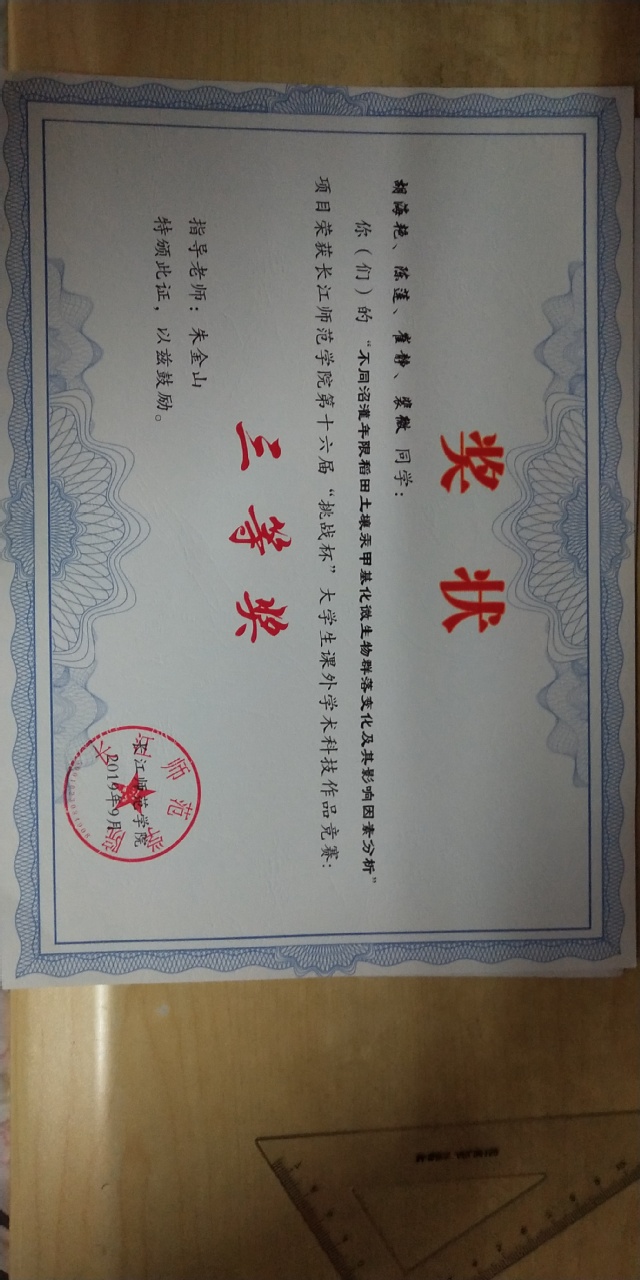 奖状
胡海艳、陈莲、崔静、裴檄 同学:
你(们)的“不同沼灌年限稻田土壤汞甲基化微生物群落变化及其影响因素分析”
项目荣获长江师范学院第十六届“挑战杯”大学生课外学术科技作品竞赛:
三等奖
指导老师:朱金山
特颁此证,以兹鼓励。
长江师范学院
2019年9月